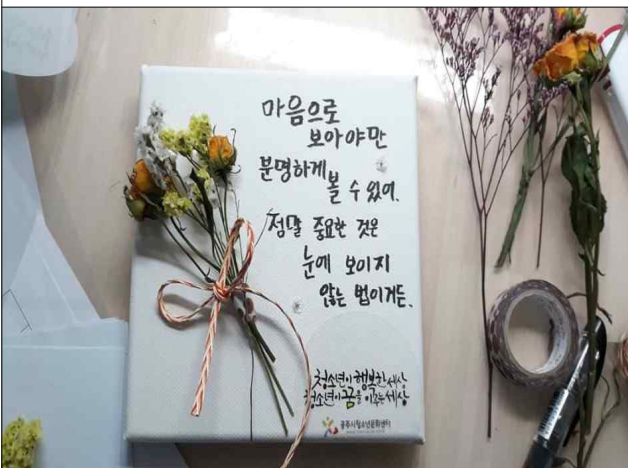 마음으로
보아야만
분명하게
볼 수 있어.
정말 중요한 것은
눈에 보이지
않는 법이거든.
청소년이 행복한 세상
청소년이 꿈을 이루는 세상
공주시청소년문화센터